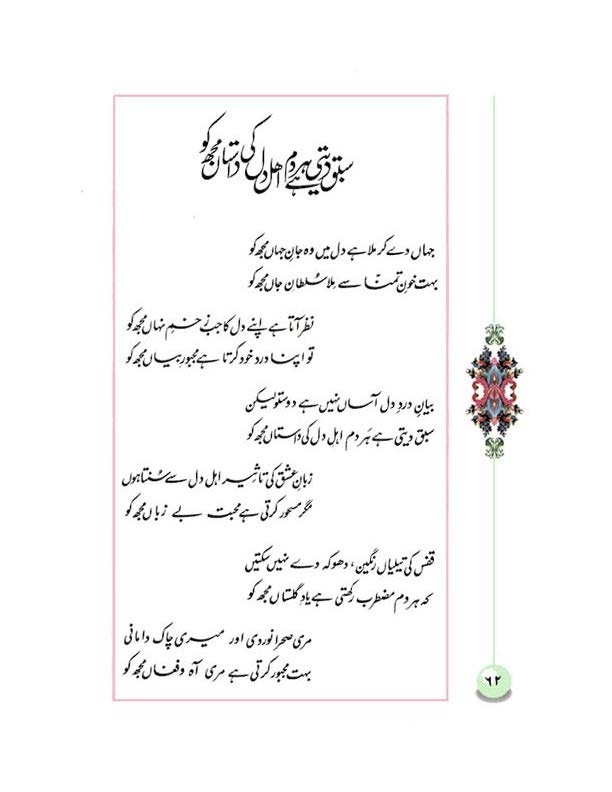 سبق دیتی ہے ہر دم اہل دل کی داستاں مجھ کو
جہاں دے کر ملا ہے دل میں وہ جانِ جہاں مجھ کو
بہت خونِ تمنا سے مِلا سُلطانِ جاں مجھ کو
نظر آتا ہے اپنے دل کا جب زخمِ نہاں مجھ کو
تو اپنا درد خود کرتا ہے مجبورِ بیاں مجھ کو
بیانِ دردِ دل آساں نہیں ہے دوستو لیکن
سبق دیتی ہے ہَر دم اہل دل کی داستاں مجھ کو
زبانِ عشق کی تاثیر اہل دل سے سُنتا ہوں
مگر مسحور کرتی ہے محبت بے زباں مجھ کو
قفس کی تیلیاں رنگین، دھوکہ دے نہیں سکتیں
کہ ہر دم مضطرب رکھتی ہے یادِ گلستاں مجھ کو
مری صحرا نوردی اور میری چاک دامانی
بہت مجبور کرتی ہے مری آہ و فغاں مجھ کو
۶۲